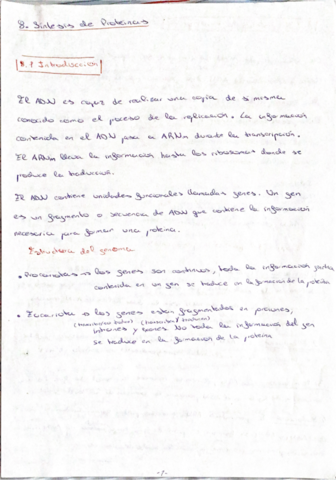 8. Síntesis de Proteínas
8.1 Introducción
El ADN es capaz de realizar una copia de si misma
conocido como el proceso de la replicación. La información
contenida en el ADN pasa a ARNm durante la transcripción.
El ARNm lleva la información hasta los ribosomas donde se
produce la traducción.
El ADN contiene unidades funcionales llamadas genes. Un gen
es un fragmento o secuencia de ADN que contiene la información
necesaria para formar una proteína.
Estructura del genoma
• Procariotas → los genes son continuos, toda la información
contenida en un gen se traduce en la formación de la proteína
• Eucariota los genes están fragmentados en porciones,
intrones y exones. No toda la información del gen
se traduce en la formación de la proteína
-1-